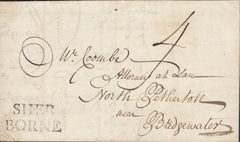 4
Mr. Coombe
Attorney at Law
North Petherton
near
Bridgewater
SHER
BORNE